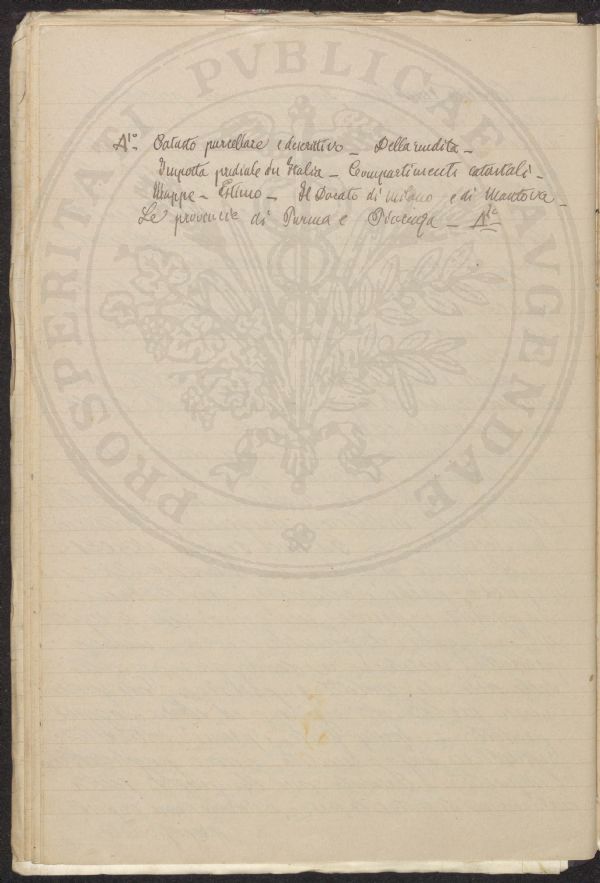 A1º Catasto parcellare e descrittivo – Della rendita –
Imposta prediale in Italia – Compartimenti catastali –
Mappe – Estimo – Il Ducato di Milano e di Mantova –
Le provincie di Parma e Piacenza –
PROSPERITATI PVBLICAE AVGENDAE